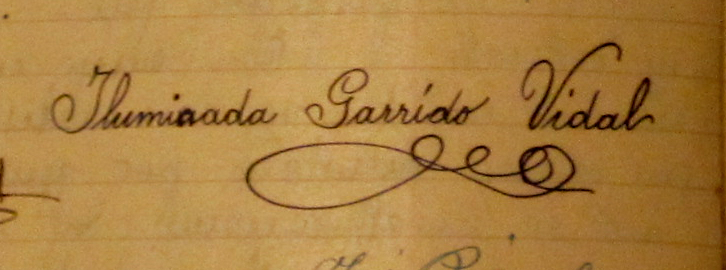 Iluminada Garrído Vidal